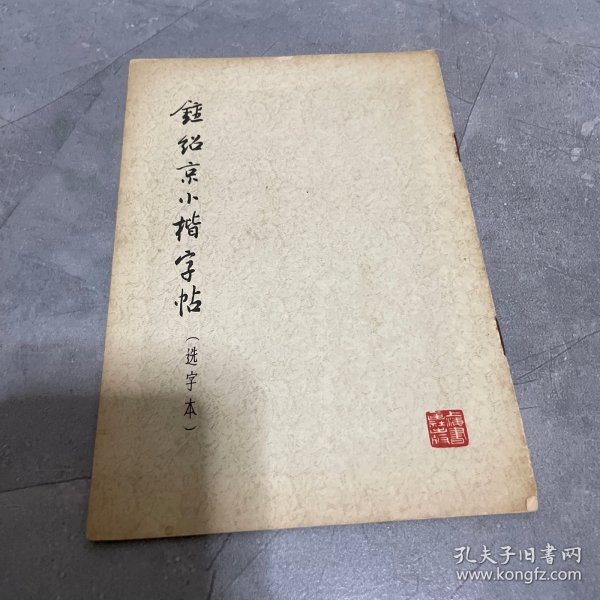 鍾绍京小楷字帖
（选字本）
上海书
画社出版
孔夫子旧书网
www.kongfz.com